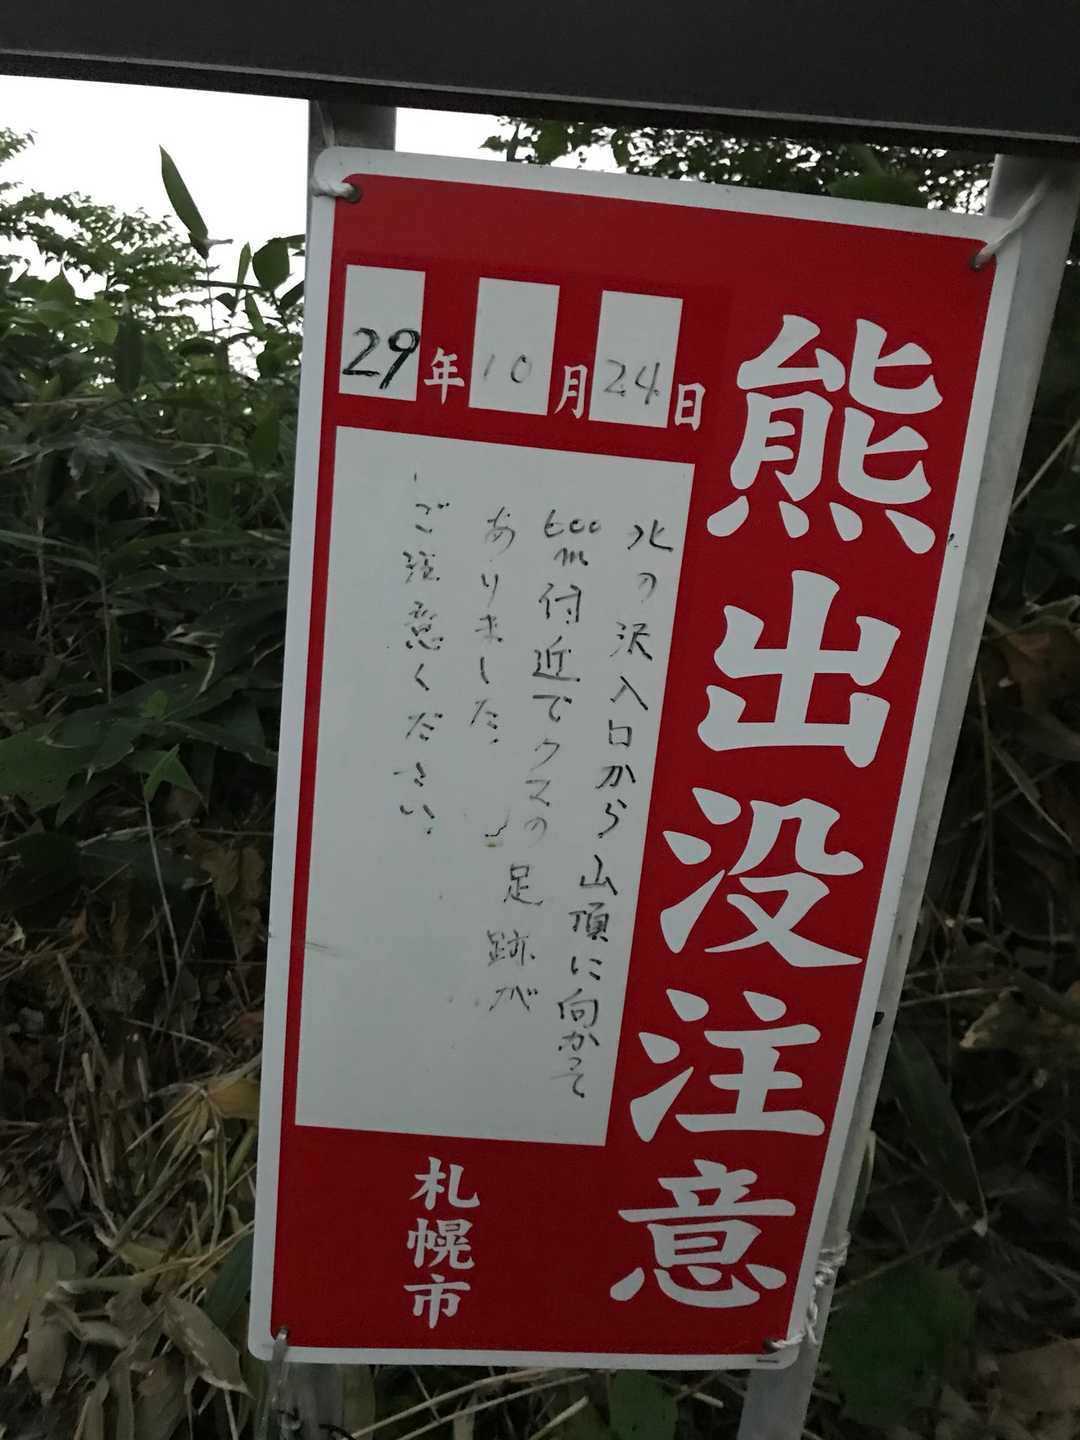 熊出没注意
29年10月24日
北の沢入口から山頂に向かって
600m付近でクスの足跡が
ありました
ご注意ください
札幌市